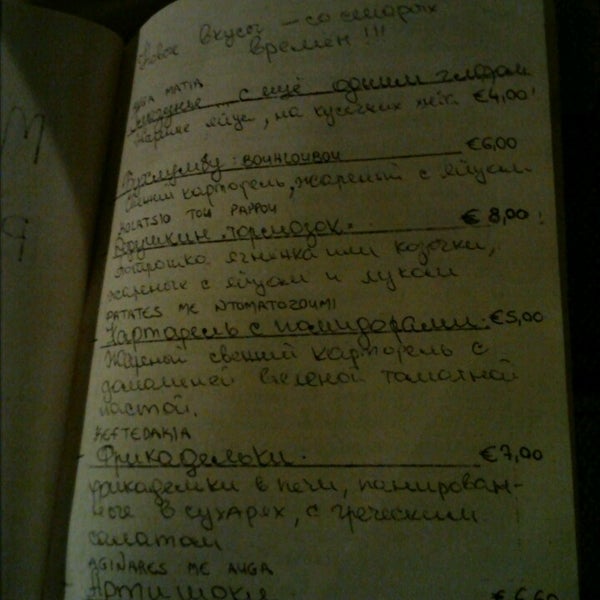 Новое вкусы – со старых
времен!!!
AVGA MATIA
... с ещё одним глазом
Жареные яйца, на кусочках €4,00!
Бухлумву: BOUHLOUBOU €6,00
Свежий картофель, жареный с яйцом.
KOLATSIO TOU PAPPOU
Дедушкин тормозок. € 8,00!
потрошка ягнёнка или козочки,
жареные с яйцом и луком
PATATES ME NTOMATOZOUMI
Картофель с помидорами. €5,00
Жареный свежий картофель с
домашней вяленой томатной
пастой.
KEFTEDAKIA
Фрикадельки. €7,00
фрикадельки в печи, панирован-
ные в сухарях, с греческим
салатом
AGINARES ME AUGA
Артишоки €6,60